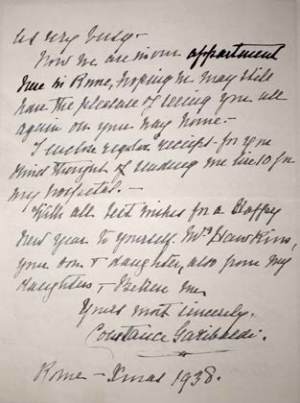 us very busy—
Now we are in our appartment
here in Rome, hoping we may still
have the pleasure of seeing you all
again on your way home—
I enclose regular receipt for your
kind thought of sending me for
my hospital.—
With all best wishes for a Happy
New Year to yourself, Mrs Hawkins,
your son & daughter, also from my
daughters & me,
Yours most sincerely,
Constance Garibaldi.
Rome — Xmas 1938.